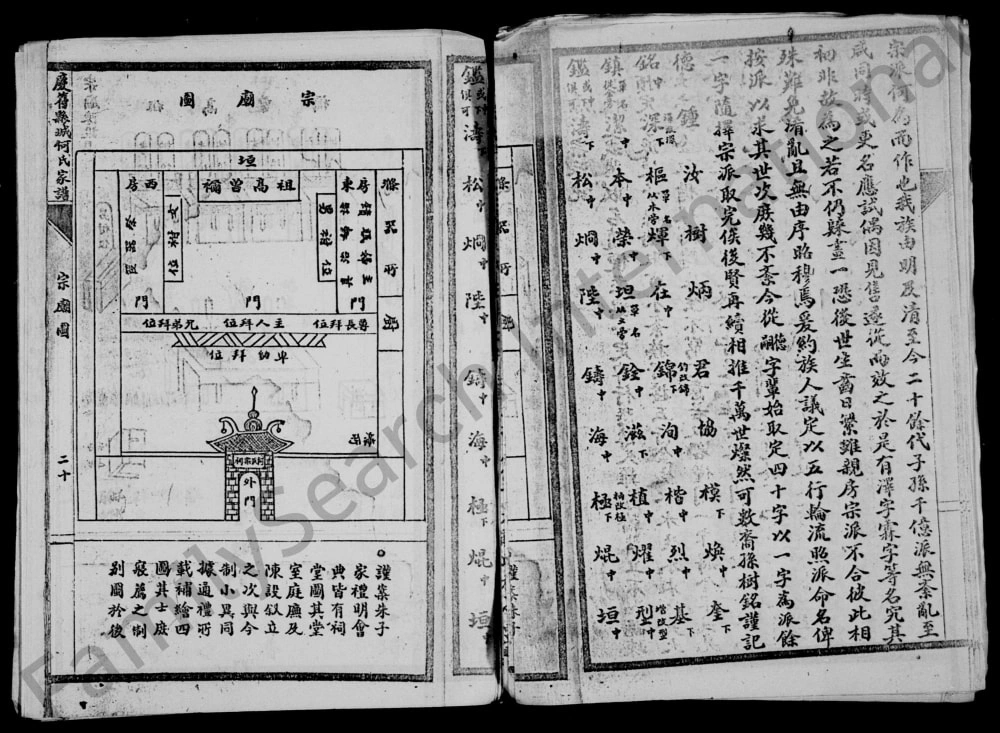 宗派何為而作也我族由明及清至今二十餘代子孫千億派無紊亂至
咸同時或更名應試偶因見售遂從而效之於是有澤字霖字等名究其
初非故為之若不仍縣畫一恐後世生齒日繁雖親房宗派不合彼此相
殊難免淆亂且無由序昭穆焉爰約族人議定以五行輪流照派命名俾
按派以求其世次庶幾不紊今從 字輩始取定四十字以一字為派餘
一字隨擇宗派取完俟後賢再續相推千萬世燦然可數裔孫樹銘謹記
德 鍾 汝 樹 炳 君 協 模下 煥中 奎下
銘中 深下 樞 煇下 在中 錦下 洵中 楷中 烈中 基下
鎮 潔中 本中 榮中 垣 銓中 滋下 植中 耀中 型中
鑑 濤下 松中 炯中 陞中 鑄中 海中 極下 焜中 垣中
鑑或中或下俱可 濤 松中 炯中 陞中 鑄中 海中 極下 焜中 垣中
慶舊縣城何氏家譜
宗廟圖
二十
宗廟圖
垣
滌器所
厨
西房
祖高曾禰
東房
門
門
門
兄弟拜位
主人拜位
尊長拜位
卑幼拜位
何氏宗祠
外門
謹案朱子
家禮明會
典皆有祠
堂圖其堂
室庭廡及
陳設叙立
之次與今
制小異同
據通禮所
載補繪四
圖其士庶
寢薦之制
別圖於後